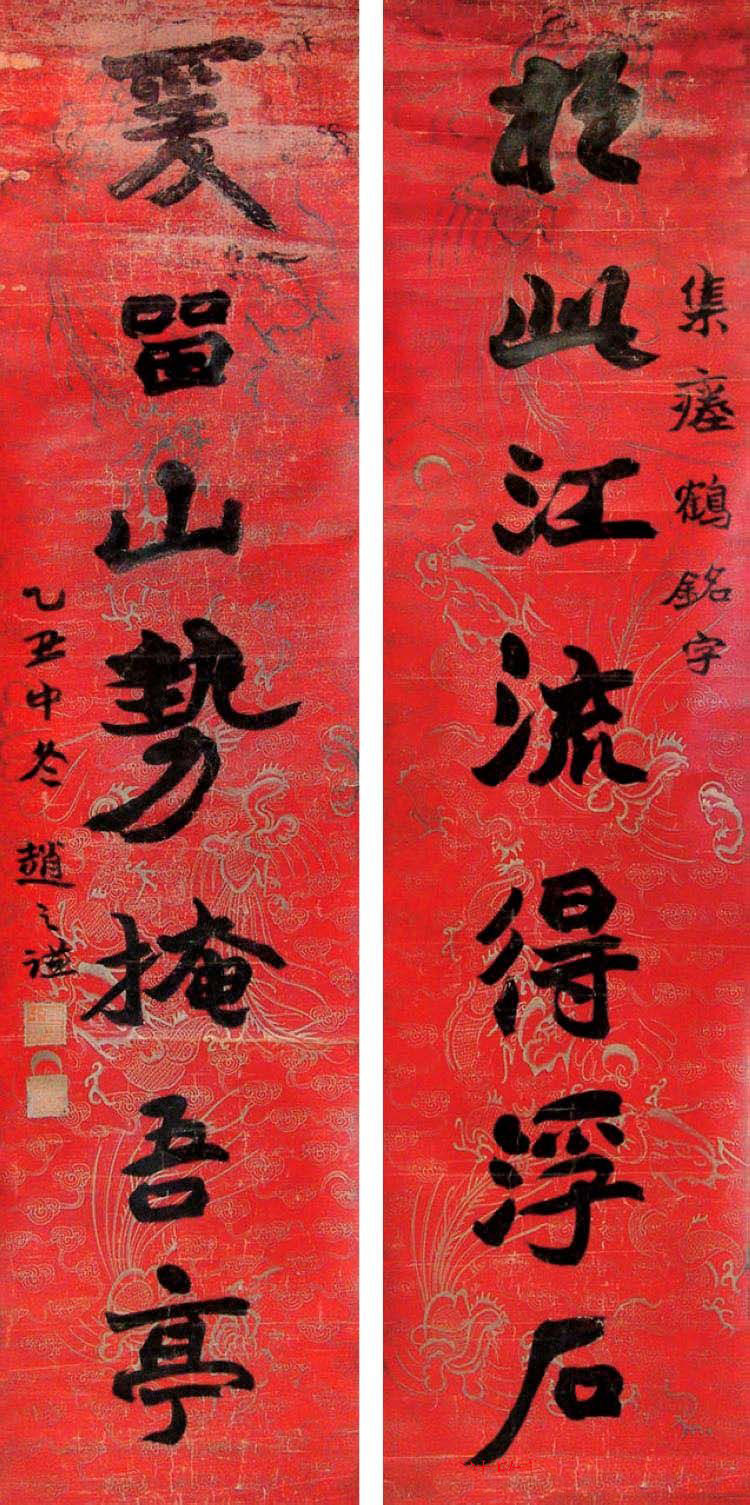 集瘞鶴銘字
於此江流得浮石
爰留山勢掩吾亭
乙丑中冬 趙之謙